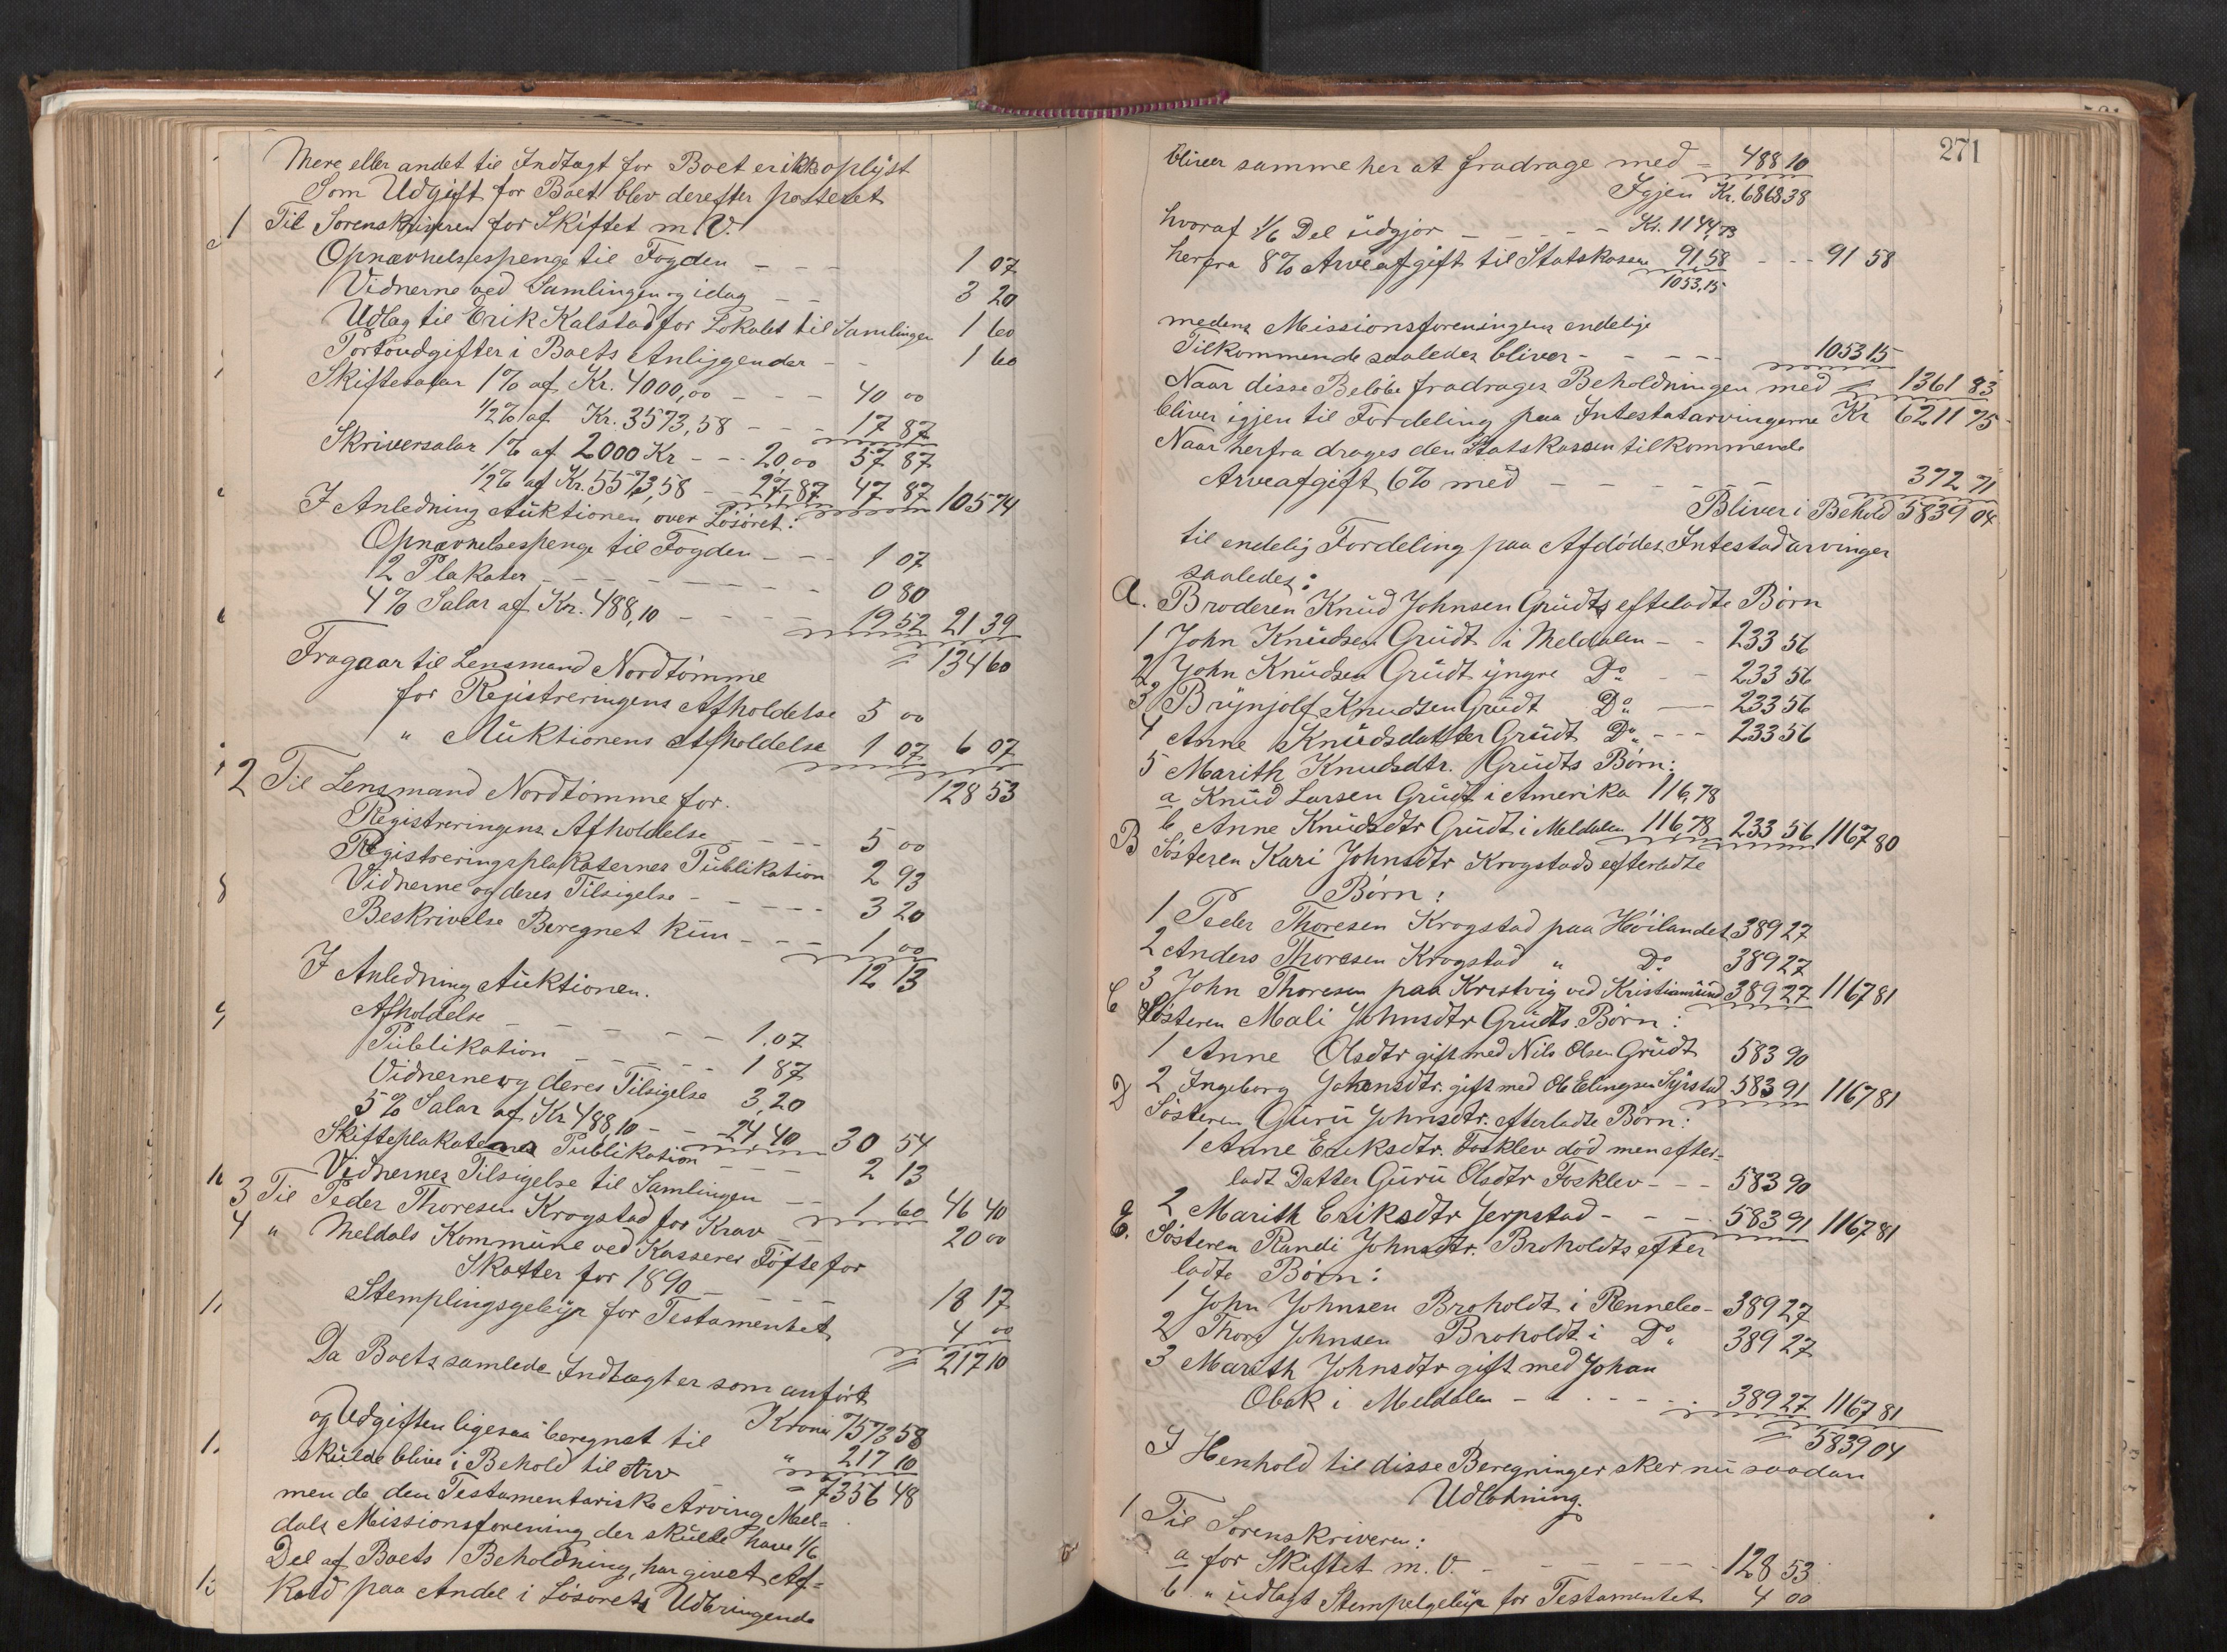 Mere eller andet til Indtægt for Boet er ikke oplyst
Som Udgift for Boet blev derefter posteret
1 Til Sorenskriveren for Skiftet m. V.
Opnævnelsespenge til Fogden - - - 1 07
Vidnerne ved Samlingen og idag - - 3 20
Udlæg til Erik Kalstad for Lokalet til Samlingen 1 60
Portoudgifter i Boets Anliggender - - 1 60
Skiftesalar 1% af Kr. 4000,00 - - - 40 00
1/2% af Kr. 3573,58 - - - 17 87
Skriversalar 1% af 2000 Kr - - - 20,00 57 87
1/2% af Kr. 5573,58 - - 27,87 47 87 105 74
I Anledning Auktionen over Løsøret:
Opnævnelsespenge til Fogden - - - 1 07
12 Plakater - - - - - - - 0 80
4% Salar af Kr. 488,10 - - - - - 19 52 21 39
Fragaar til Lensmand Nordtømme = 134 60
for Registreringens Afholdelse 5 00
" Auktionens Afholdelse 1 07 6 07
128 53
2 Til Lensmand Nordtømme for.
Registreringens Afholdelse - - - - 5 00
Registreringsplakaternes Publikation 2 93
Vidnerne og deres Tilsigelse - - - - - 3 20
Beskrivelse Beregnet kun - - - 1 00
12 13
I Anledning Auktionen.
Afholdelse - - - - - - 1.07
Publikation - - - - - 1 87
Vidnerne og deres Tilsigelse 3,20
5% Salar af Kr 488,10 - - 24,40 30 54
Skifteplakaternes Publikation - - - 2 13
Vidnernes Tilsigelse til Samlingen - - 1 60 46 40
3 Til Peder Thoresen Krogstad for Krav - - 20 00
4 " Meldals Kommune ved Kasserer Tøfte for
Skatter for 1890 - - - - - 18 17
Stemplingsgebyr for Testamentet 4 00
= 217 10
Da Boets samlede Indtægter som anført
Kroner 7573 58
og Udgiften ligesaa beregnet til " 217 10
skulde blive i Behold til Arv - = 7356 48
men da den Testamentariske Arving Mel=
dals Missionsforening der skulde have 1/6
Del af Boets Beholdning, har givet Af=
kald paa Andel i Løsørets Udbringende
271
bliver samme her at fradrage med = 488 10
Igjen Kr. 6868 38
hvoraf 1/6 Del udgjør - - - - - Kr. 1144,73
herfra 8% Arveafgift til Statskassen 91 58 - - - 91 58
1053,15
medens Missionsforeningens endelige
Tilkommende saaledes bliver - - - - - 1053 15
Naar disse Beløbe fradrages Beholdningen med = 1361 83
bliver igjen til Fordeling paa Intestatarvingerne Kr 6211 75
Naar herfra drages den Statskassen tilkommende
Arveafgift 6% med - - - - - - 372 71
Bliver i Behold 5839 04
til endelig Fordeling paa Afdødes Intestadarvinger
saaledes:
A. Broderen Knud Johnsen Grudts efteladte Børn
1 John Knudsen Grudt i Meldalen - - 233 56
2 John Knudsen Grudt yngre Do - - 233 56
3 Brynjolf Knudsen Grudt Do - - 233 56
4 Anne Knudsdatter Grudt Do - - - 233 56
5 Marith Knudsdtr. Grudts Børn:
a Knud Larsen Grudt i Amerika 116,78
b Anne Knudsdtr Grudt i Meldalen 116,78 233 56 1167 80
B Søsteren Kari Johnsdtr Krogstads efterladte
Børn:
1 Peder Thoresen Krogstad paa Høilandet 389 27
2 Anders Thoresen Krogstad " Do 389 27
3 John Thoresen paa Krestvig ved Kristiansund 389 27 1167 81
C Søsteren Mali Johnsdtr Grudts Børn:
1 Anne Olsdtr gift med Nils Olsen Grudt 583 90
2 Ingeborg Johnsdtr. gift med Ole Elingsen Syrstad 583 91 1167 81
D Søsteren Guru Johnsdtr. efterladte Børn:
1 Anne Eriksdtr. Fosklev død men efter=
ladt Datter Guru Olsdtr Fosklev - - - 583 90
2 Marith Eriksdtr Jerpstad - - - 583 91 1167 81
E. Søsteren Randi Johnsdtr. Broholdts efter
ladte Børn:
1 John Johnsen Broholdt i Rennebo - 389 27
2 Thore Johnsen Broholdt i Do 389 27
3 Marith Johnsdtr gift med Johan
Obak i Meldalen - - - - - 389 27 1167 81
= 5839 04
I Henhold til disse Beregninger sker nu saadan
Udlodning.
1 Til Sorenskriveren:
a for Skiftet m. V. - - - - - - - 128 53
b " udlagt Stempelgebyr for Testamentet 4 00